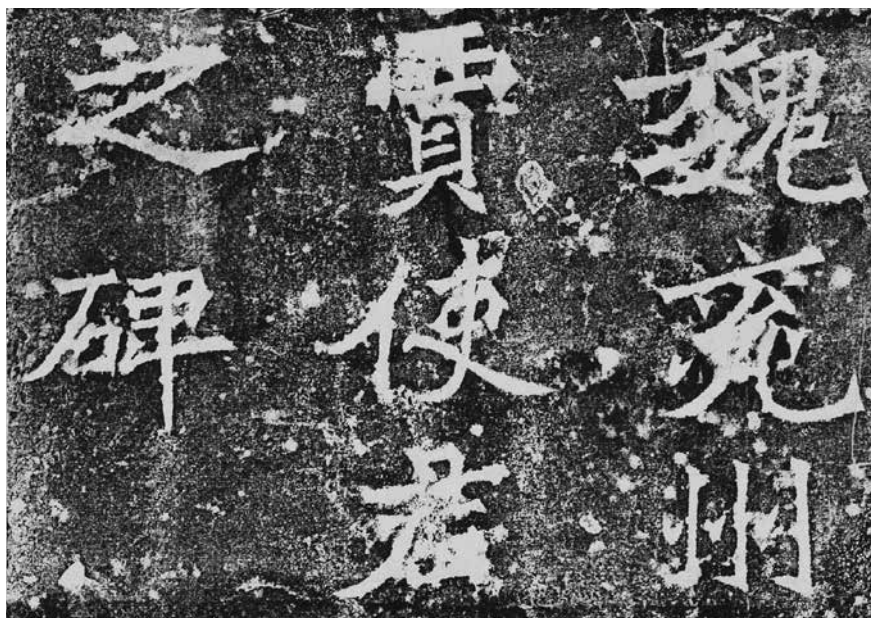 魏兖州
賈使君
之碑